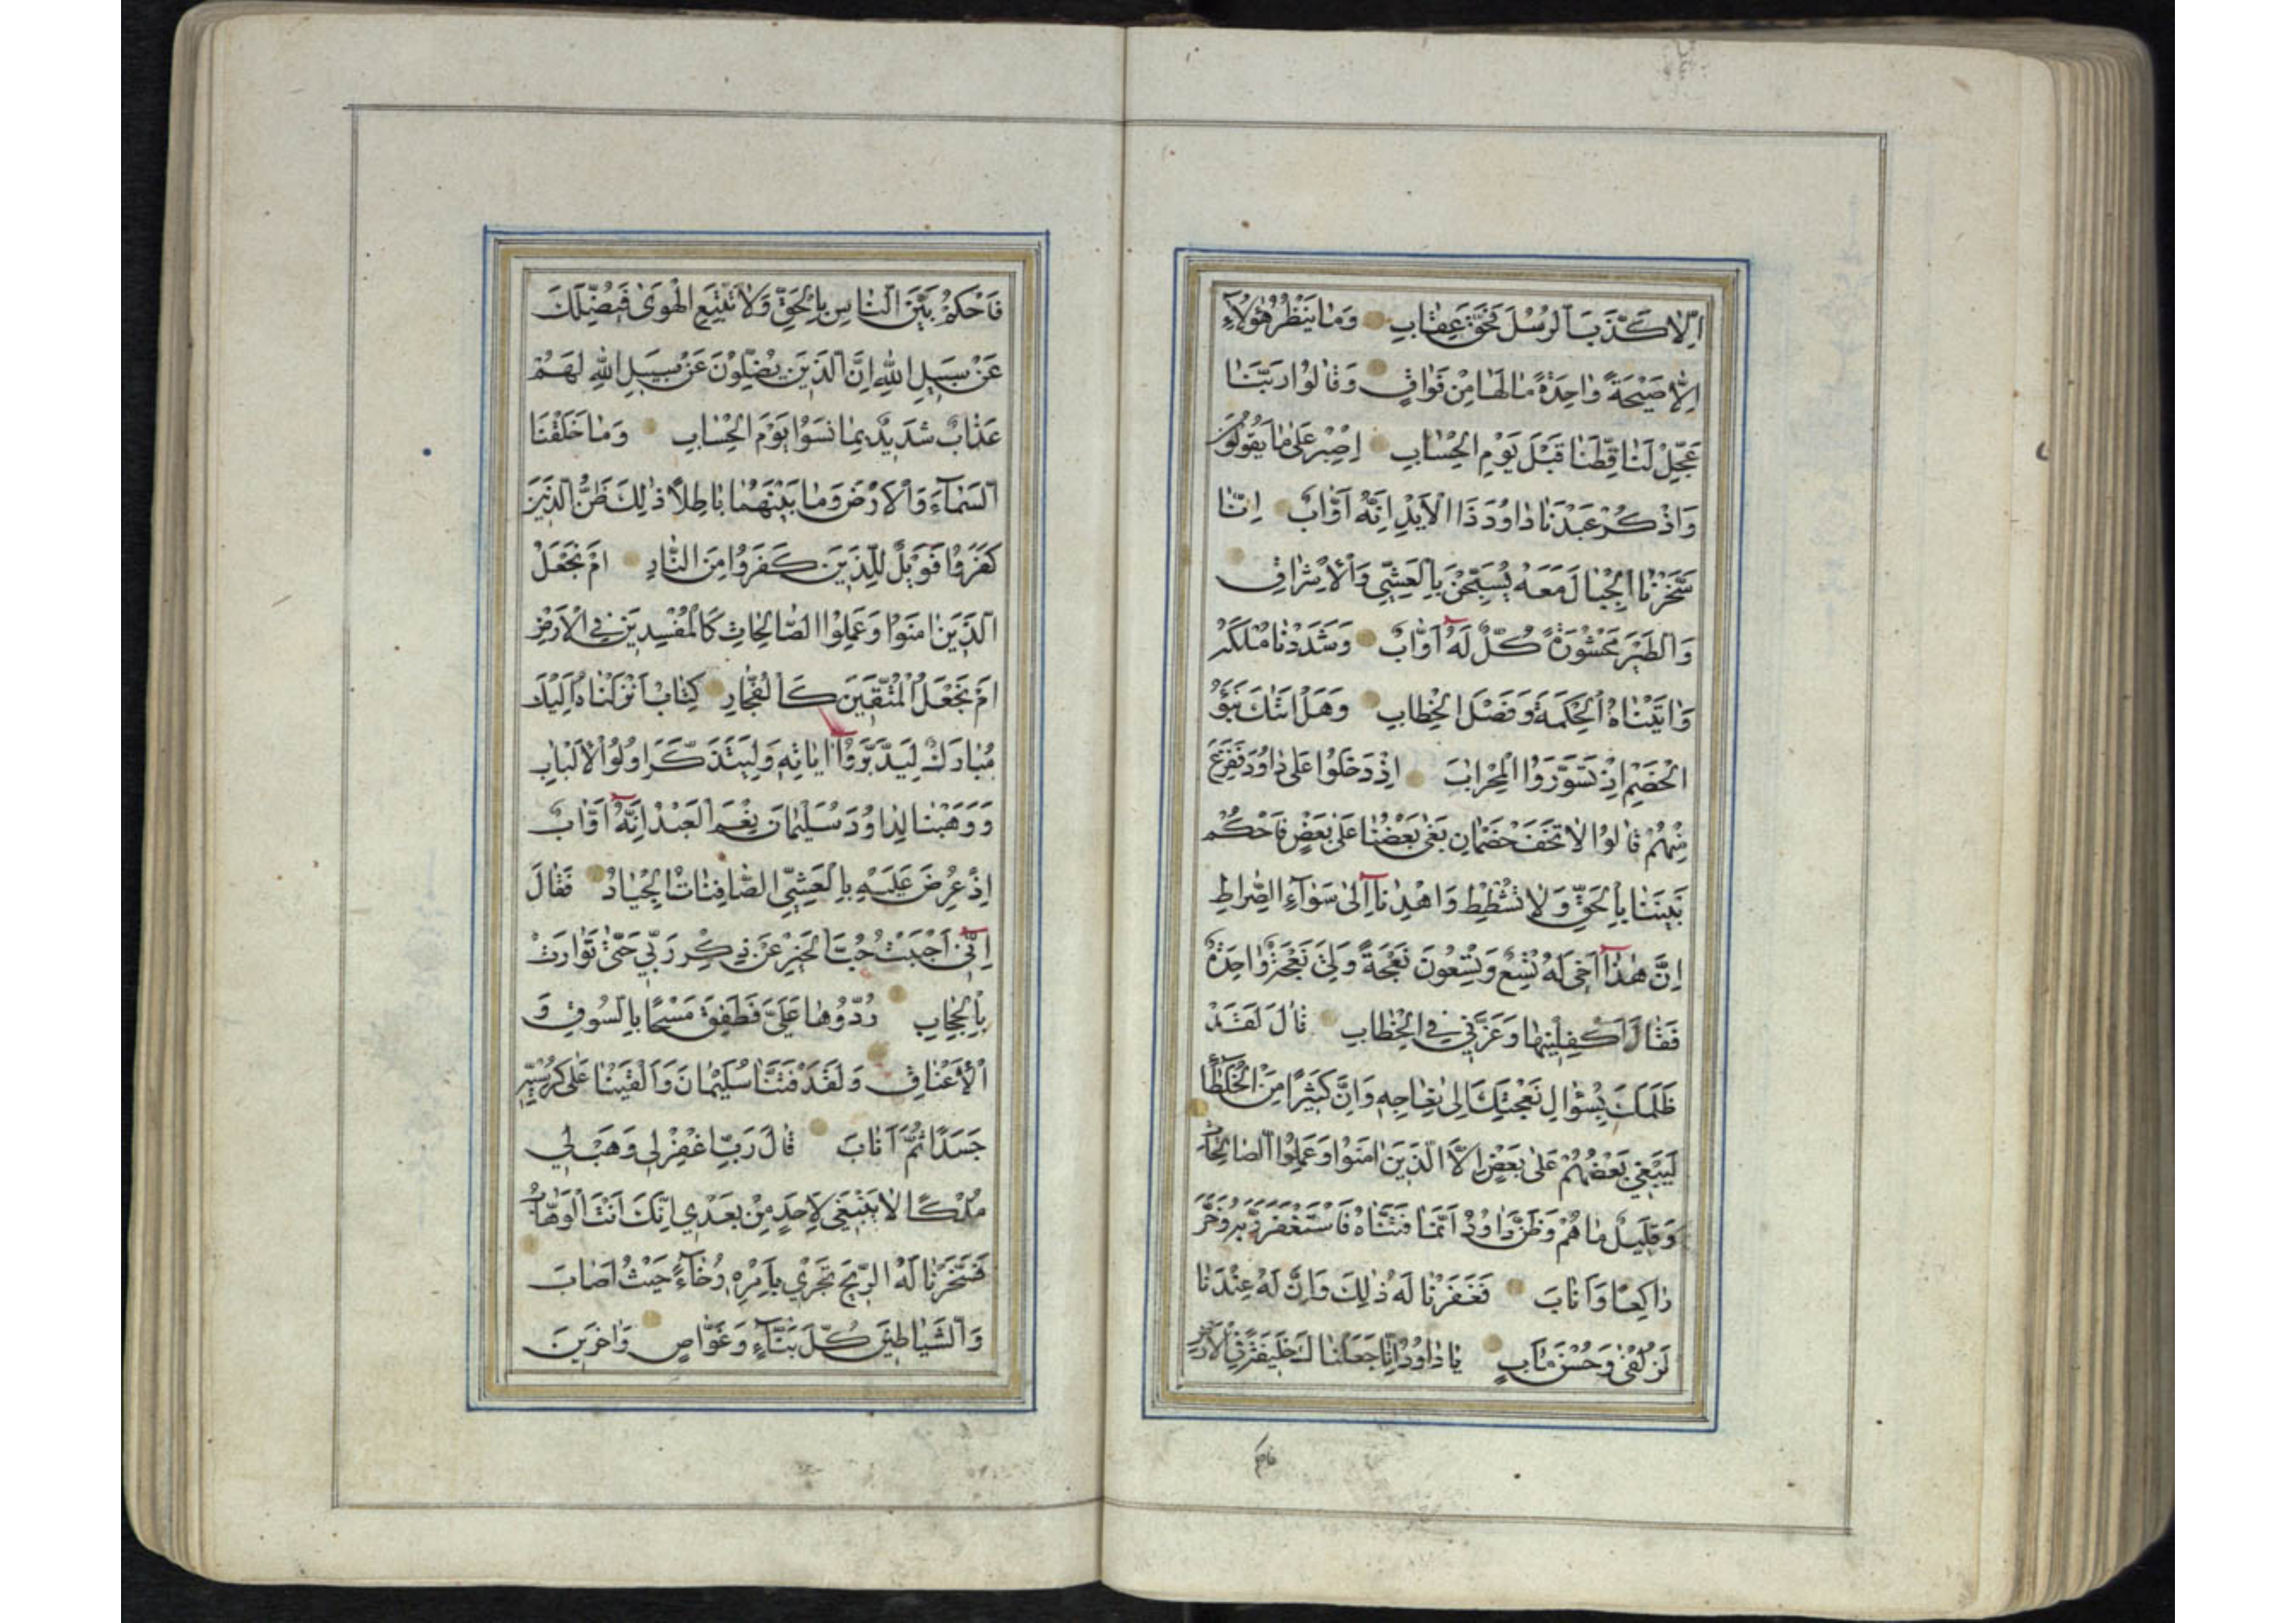 اِلَّا كَذَّبَ الرُّسُلَ فَحَقَّ عِقَابِ وَمَا يَنْظُرُ هٰؤُلَاۤءِ
اِلَّا صَيْحَةً وَاحِدَةً مَالَهَا مِنْ فَوَاقٍ وَقَالُوا رَبَّنَا
عَجِّلْ لَنَا قِطَّنَا قَبْلَ يَوْمِ الْحِسَابِ اِصْبِرْ عَلٰى مَا يَقُولُونَ
وَاذْكُرْ عَبْدَنَا دَاوُدَ ذَا الْاَيْدِ اِنَّهُ اَوَّابٌ اِنَّا
سَخَّرْنَا الْجِبَالَ مَعَهُ يُسَبِّحْنَ بِالْعَشِيِّ وَالْاِشْرَاقِ
وَالطَّيْرَ مَحْشُورَةً كُلٌّ لَهُ اَوَّابٌ وَشَدَدْنَا مُلْكَهُ
وَاٰتَيْنَاهُ الْحِكْمَةَ وَفَصْلَ الْخِطَابِ وَهَلْ اَتٰكَ نَبَؤُ
الْخَصْمِ اِذْ تَسَوَّرُوا الْمِحْرَابَ اِذْ دَخَلُوا عَلٰى دَاوُدَ فَفَزِعَ
مِنْهُمْ قَالُوا لَا تَخَفْ خَصْمَانِ بَغٰى بَعْضُنَا عَلٰى بَعْضٍ فَاحْكُمْ
بَيْنَنَا بِالْحَقِّ وَلَا تُشْطِطْ وَاهْدِنَاۤ اِلٰى سَوَاۤءِ الصِّرَاطِ
اِنَّ هٰذَاۤ اَخِى لَهُ تِسْعٌ وَتِسْعُونَ نَعْجَةً وَلِىَ نَعْجَةٌ وَاحِدَةٌ
فَقَالَ اَكْفِلْنِيهَا وَعَزَّنِي فِي الْخِطَابِ قَالَ لَقَدْ
ظَلَمَكَ بِسُؤَالِ نَعْجَتِكَ اِلٰى نِعَاجِهِ وَاِنَّ كَثِيرًا مِنَ الْخُلَطَاۤءِ
لَيَبْغِي بَعْضُهُمْ عَلٰى بَعْضٍ اِلَّا الَّذِينَ اٰمَنُوا وَعَمِلُوا الصَّالِحَاتِ
وَقَلِيلٌ مَا هُمْ وَظَنَّ دَاوُدُ اَنَّمَا فَتَنَّاهُ فَاسْتَغْفَرَ رَبَّهُ وَخَرَّ
رَاكِعًا وَاَنَابَ فَغَفَرْنَا لَهُ ذٰلِكَ وَاِنَّ لَهُ عِنْدَنَا
لَزُلْفٰى وَحُسْنَ مَاٰبٍ يَا دَاوُدُ اِنَّا جَعَلْنَاكَ خَلِيفَةً فِي الْاَرْضِ
فاحكم
فَاحْكُمْ بَيْنَ النَّاسِ بِالْحَقِّ وَلَا تَتَّبِعِ الْهَوٰى فَيُضِلَّكَ
عَنْ سَبِيلِ اللهِ اِنَّ الَّذِينَ يَضِلُّونَ عَنْ سَبِيلِ اللهِ لَهُمْ
عَذَابٌ شَدِيدٌ بِمَا نَسُوا يَوْمَ الْحِسَابِ وَمَا خَلَقْنَا
السَّمَاۤءَ وَالْاَرْضَ وَمَا بَيْنَهُمَا بَاطِلًا ذٰلِكَ ظَنُّ الَّذِينَ
كَفَرُوا فَوَيْلٌ لِلَّذِينَ كَفَرُوا مِنَ النَّارِ اَمْ نَجْعَلُ
الَّذِينَ اٰمَنُوا وَعَمِلُوا الصَّالِحَاتِ كَالْمُفْسِدِينَ فِي الْاَرْضِ
اَمْ نَجْعَلُ الْمُتَّقِينَ كَالْفُجَّارِ كِتَابٌ اَنْزَلْنَاهُ اِلَيْكَ
مُبَارَكٌ لِيَدَّبَّرُوۤا اٰيَاتِهِ وَلِيَتَذَكَّرَ اُولُوا الْاَلْبَابِ
وَوَهَبْنَا لِدَاوُدَ سُلَيْمَانَ نِعْمَ الْعَبْدُ اِنَّهُ اَوَّابٌ
اِذْ عُرِضَ عَلَيْهِ بِالْعَشِيِّ الصَّافِنَاتُ الْجِيَادُ فَقَالَ
اِنِّىۤ اَحْبَبْتُ حُبَّ الْخَيْرِ عَنْ ذِكْرِ رَبِّي حَتّٰى تَوَارَتْ
بِالْحِجَابِ رُدُّوهَا عَلَىَّ فَطَفِقَ مَسْحًا بِالسُّوقِ وَ
الْاَعْنَاقِ وَلَقَدْ فَتَنَّا سُلَيْمَانَ وَاَلْقَيْنَا عَلٰى كُرْسِيِّهِ
جَسَدًا ثُمَّ اَنَابَ قَالَ رَبِّ اغْفِرْ لِى وَهَبْ لِي
مُلْكًا لَا يَنْبَغِى لِاَحَدٍ مِنْ بَعْدِي اِنَّكَ اَنْتَ الْوَهَّابُ
فَسَخَّرْنَا لَهُ الرِّيحَ تَجْرِي بِاَمْرِهِ رُخَاۤءً حَيْثُ اَصَابَ
وَالشَّيَاطِينَ كُلَّ بَنَّاۤءٍ وَغَوَّاصٍ وَاٰخَرِينَ